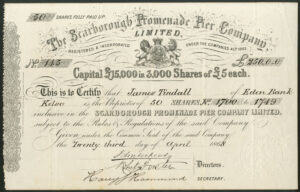 50 SHARES FULLY PAID UP
The Scarborough Promenade Pier Company,
LIMITED.
REGISTERED & INCORPORATED UNDER THE COMPANIES ACT 1862.
No. 145 £250.0.0
Capital £15,000 in 3,000 Shares of £5 each.
This is to Certify that James Tindall of Eden Bank
is the Proprietor of 50 SHARES No. 1700 to 1749
inclusive in the SCARBOROUGH PROMENADE PIER COMPANY LIMITED,
subject to the Rules & Regulations of the said Company
Given under the Common Seal of the said Company
the Twenty third day of April 1868
Directors.
Secretary.